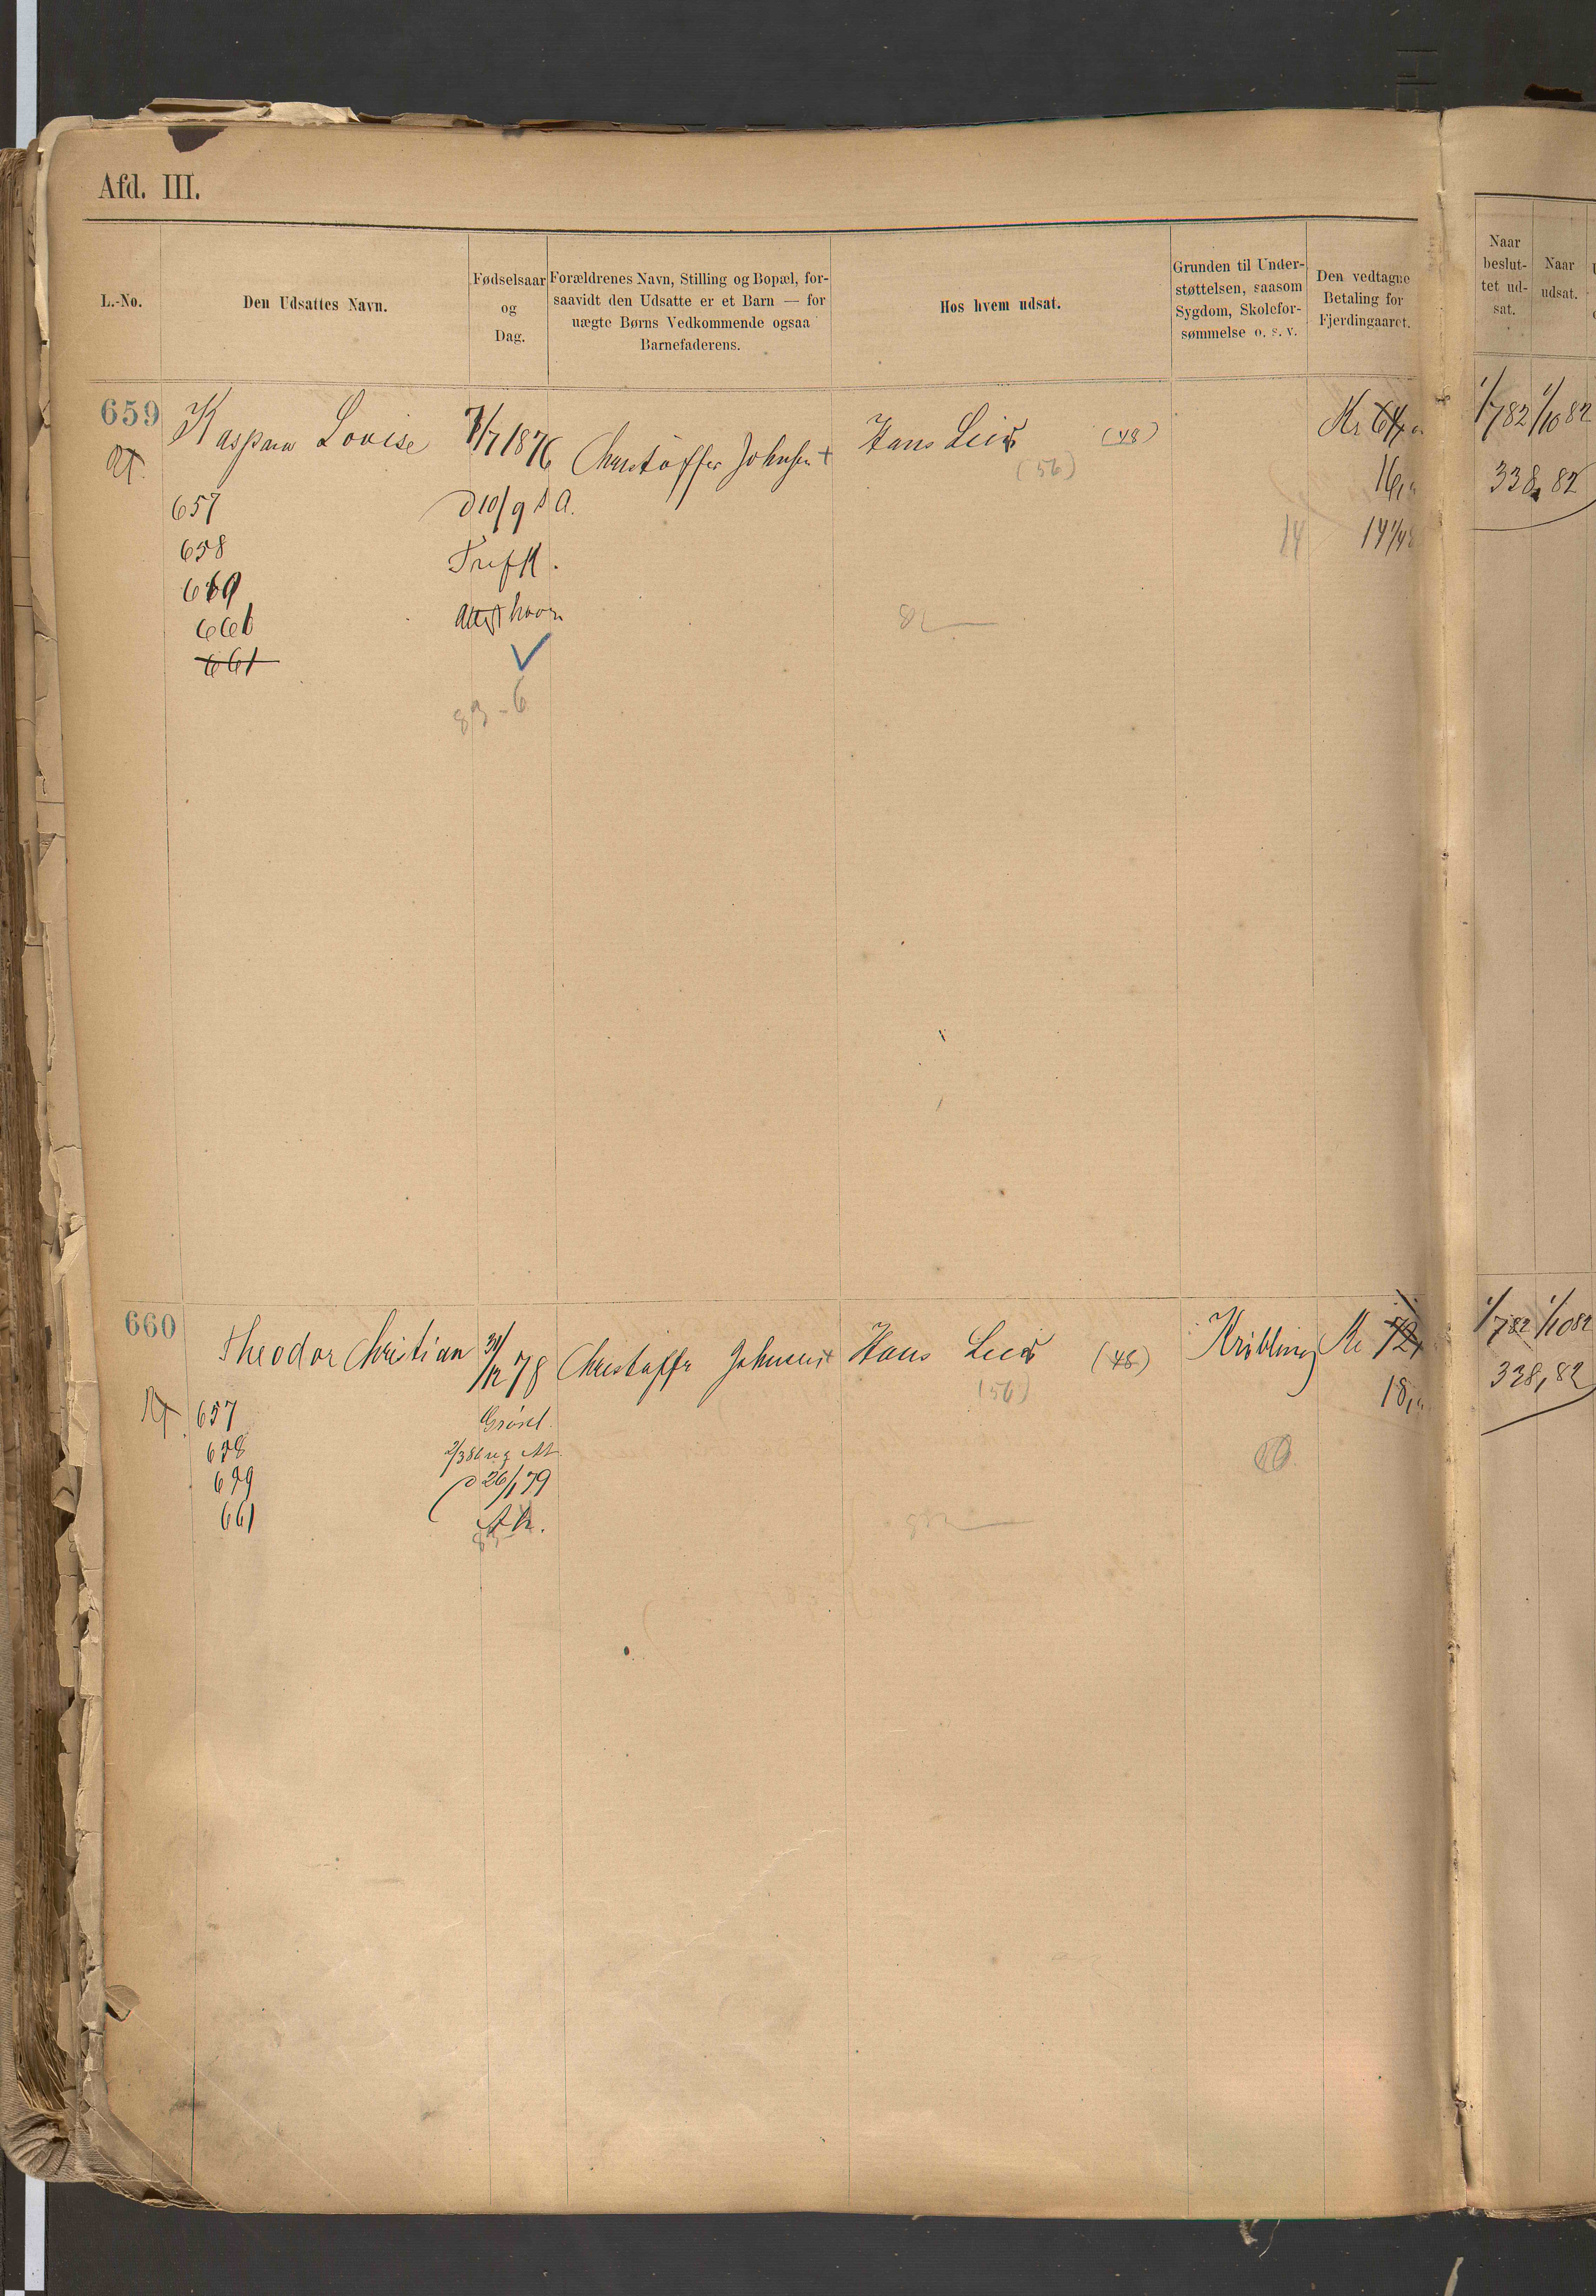 Afd. III.
L.-No.
Den Udsattes Navn.
Fødselsaar
og
Dag.
Forældrenes Navn, Stilling og Bopæl, for-
saavidt den Udsatte er et Barn — for
uægte Børns Vedkommende ogsaa
Barnefaderens.
Hos hvem udsat.
Grunden til Under-
støttelsen, saasom
Sygdom, Skolefor-
sømmelse o. s. v.
Den vedtagne
Betaling for
Fjerdingaaret.
Naar
beslut-
tet ud-
sat.
Naar
udsat.
659 Kaspara Lovise 7/7 1876 Christoffer Johnsen + Hans Lien (48) Kr 64, 1/7 82 1/10 82
(56) 16, 338, 82
657 d 10/9 s A.
14 14 1/48
658
660
660 Attest havn
82
661
83-6
660 Theodor Christian 31/12 78 Christoffer Johnsen + Hans Lien (48) Krøbling Kr 72, 1/7 82 1/10 82
(56) 18, 338, 82
657
658
659 d 26/1 79
661